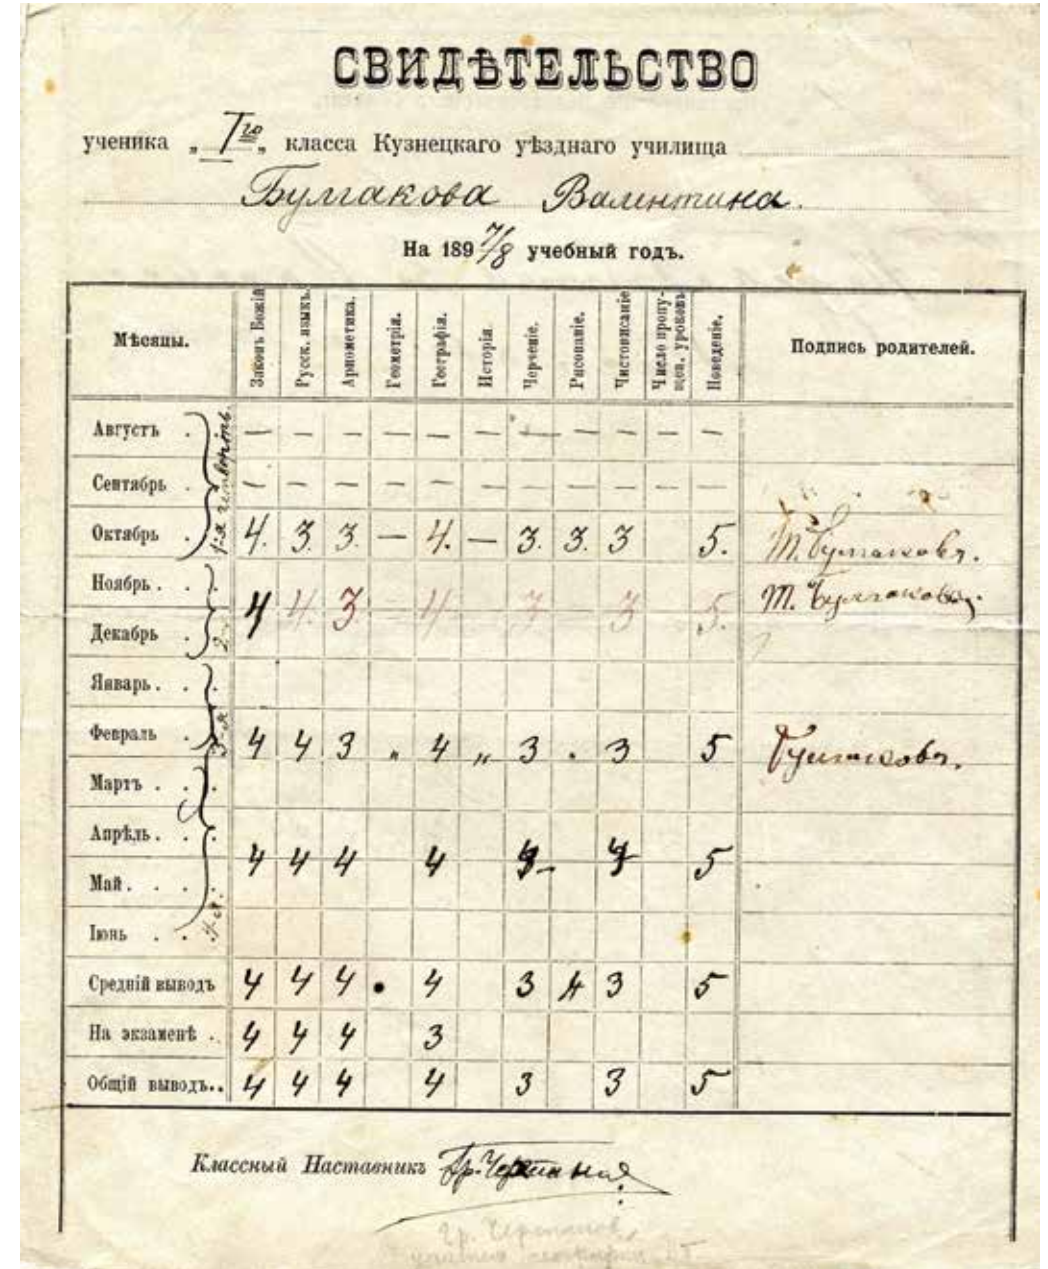 СВИДѢТЕЛЬСТВО
ученика „ Iго „ класса Кузнецкаго уѣзднаго училища
Булгакова Валентина.
На 1897/8 учебный годъ.
Мѣсяцы. Законъ Божій Русск. языкъ. Ариѳметика. Геометрія. Географія. Исторія. Черченіе. Рисованіе. Чистописаніе Число пропущен. уроковъ Поведеніе. Подпись родителей.
1-я четверть.
Августъ . — — — — — — — — — — —
Сентябрь . — — — — — — — — — — —
Октябрь . 4. 3. 3. — 4. — 3. 3. 3 5. Т. Булгаковъ.
Ноябрь . . Т. Булгакова.
Декабрь . 2 4 4. 3 — 4 — 3 — 3 — 5.
Январь . . .
Февраль . 3-я 4 4 3 „ 4 „ 3 . 3 5 Булгаковъ.
Мартъ . . .
Апрѣль . . .
Май . . . 4 4 4 4 5
Іюнь . . 4-я.
Средній выводъ 4 4 4 • 4 3 4 3 5
На экзаменѣ . 4 4 4 3
Общій выводъ.. 4 4 4 4 3 3 5
Классный Наставникъ Гр.
Гр.
учитель географии